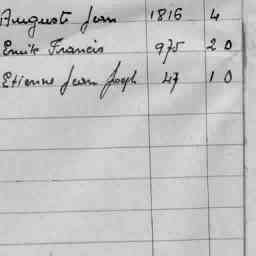 Auguste Jean 1816 4
Emile Francis 975 20
Etienne Jean Joseph 47 10